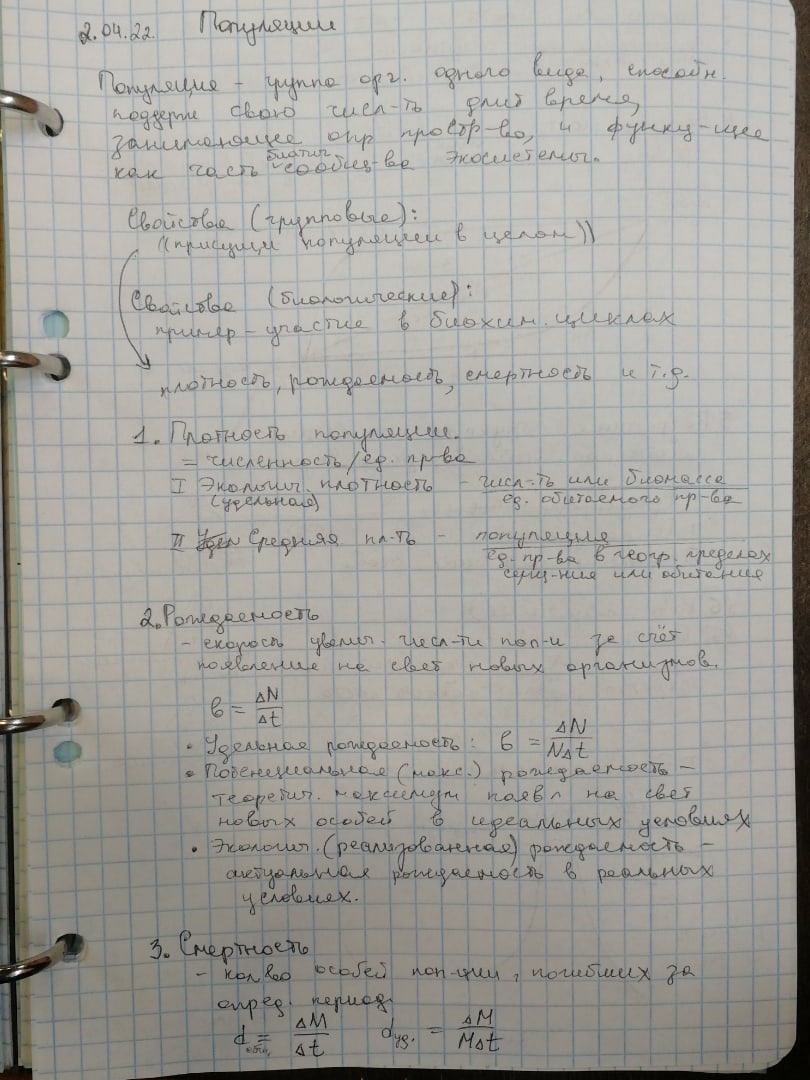 2.04.22. Популяции
Популяция - группа орг. одного вида, способн.
поддерж свою числ-ть длит время,
занимающее опр простр-во, и функц-щее
биотич.
как часть сообщ-ва экосистемы.
Свойства (групповые):
((присущи популяции в целом))
Свойства (биологические):
пример - участие в биохим. циклах
плотность, рождаемость, смертность и т.д.
1. Плотность популяции.
= численность/ед. пр-ва
I Экологич. плотность - числ-ть или биомасса
(удельная) ед. обитаемого пр-ва
II Средняя пл-ть - популяция
ед. пр-ва в геогр. пределах
сущ-ния или обитания
2. Рождаемость
- скорость увелич. числ-ти поп-и за счёт
появление на свет новых организмов.
b = ΔN/Δt
• Удельная рождаемость: b = ΔN/NΔt
• Потенциальная (макс.) рождаемость -
теоретич. максимум появл на свет
новых особей в идеальных условиях
• Экологич. (реализованная) рождаемость -
актуальная рождаемость в реальных
условиях.
3. Смертность
- кол-во особей поп-ции, погибших за
опред. период.
d общ. = ΔM/Δt d уд. = ΔM/MΔt